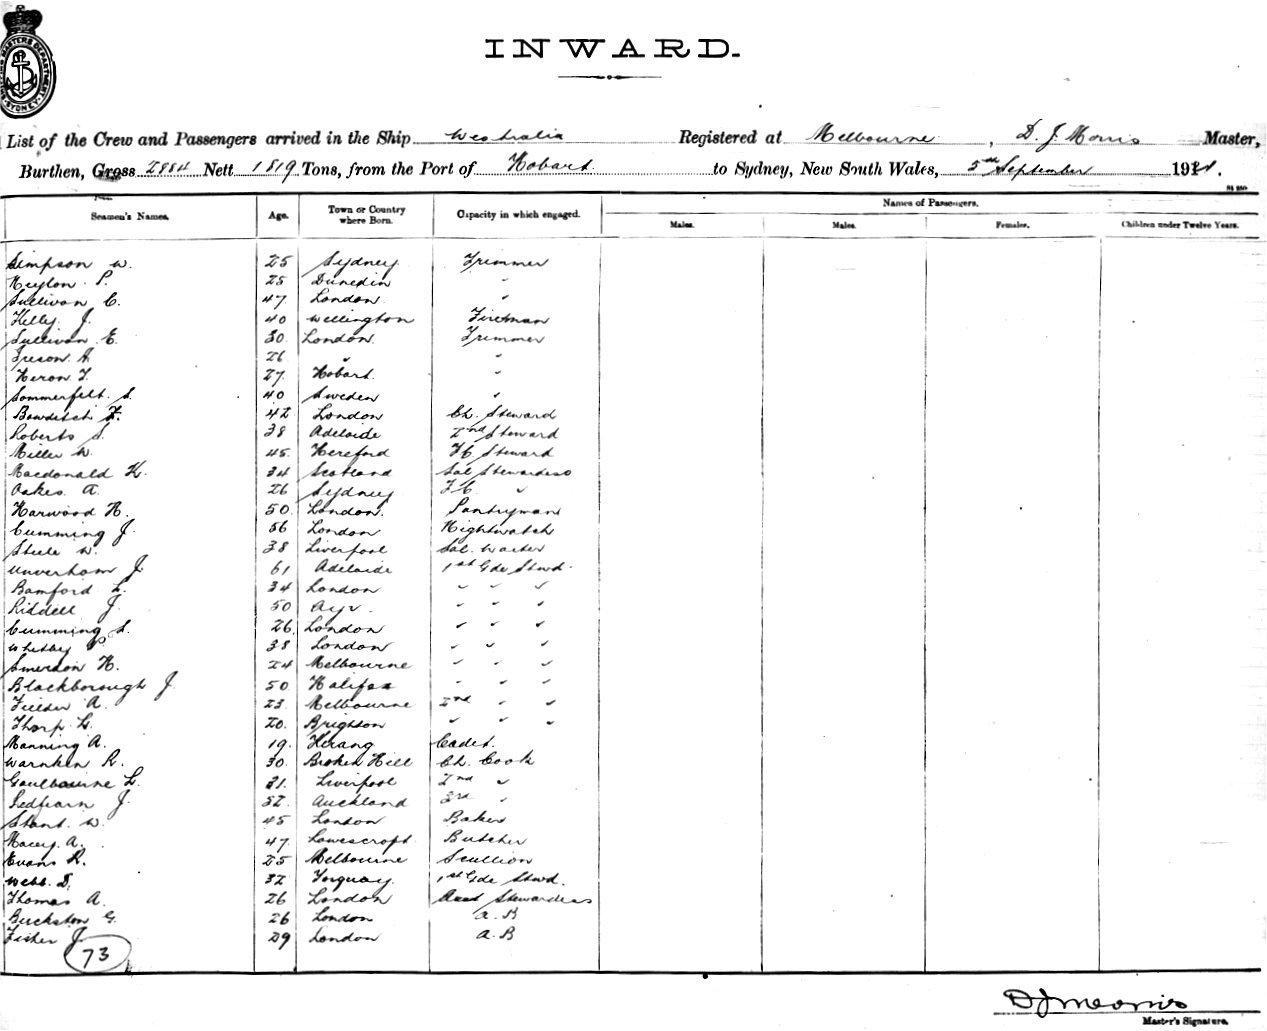 INWARD.
List of the Crew and Passengers arrived in the Ship Westralia Registered at Melbourne, D. J. Morris Master,
Burthen, Gross 2884 Nett 1819 Tons, from the Port of Hobart to Sydney, New South Wales, 5th September 191
Seamen's Names. Age. Town or Country where Born. Capacity in which engaged. Names of Passengers.
Males. Males. Females. Children under Twelve Years.
Simpson W. 25 Sydney Trimmer
P. 25 Dunedin "
Sullivan C. 47 London "
Kelly J. 40 Wellington Fireman
Sullivan E. 30 London Trimmer
A. 26 " "
Heron T. 27 Hobart "
Sommerfelt S. 40 Sweden "
Bowditch F. 42 London Ch. Steward
Roberts S. 38 Adelaide 2nd Steward
Miller W. 45 Hereford FC Steward
Macdonald K. 34 Scotland Sal Stewardess
Oakes A. 26 Sydney F.C. "
Harwood H. 50 London Pantryman
Cumming J. 56 London Nightwatch
Steele W. 38 Liverpool Sal. Waiter
Unverham J. 61 Adelaide 1st Gde Stwd.
Bamford L. 34 London " " "
Riddell J. 50 Ayr. " " "
Cumming S. 26 London " " "
Whitby P. 38 London " " "
Emerson H. 24 Melbourne " " "
Blackborough J. 50 Halifax " " "
Fielder A. 23 Melbourne 2nd " "
Thorp G. 20 Brighton " " "
Manning A. 19 Cadet.
Warnken R. 30 Broken Hill Ch. Cook
Goulbourne L. 31 Liverpool 2nd "
Ledfearn J. 32 Auckland 3rd "
Stant W. 45 London Baker
Macey A. 47 Lowescroft Butcher
Evans R. 25 Melbourne Scullion
Webb D. 32 Torquay 1st Gde Stwd.
Thomas A. 26 London Asst Stewardess
Buckston G. 26 London A.B
Fisher J. 29 London A.B
73
D J Morris
Master's Signature.